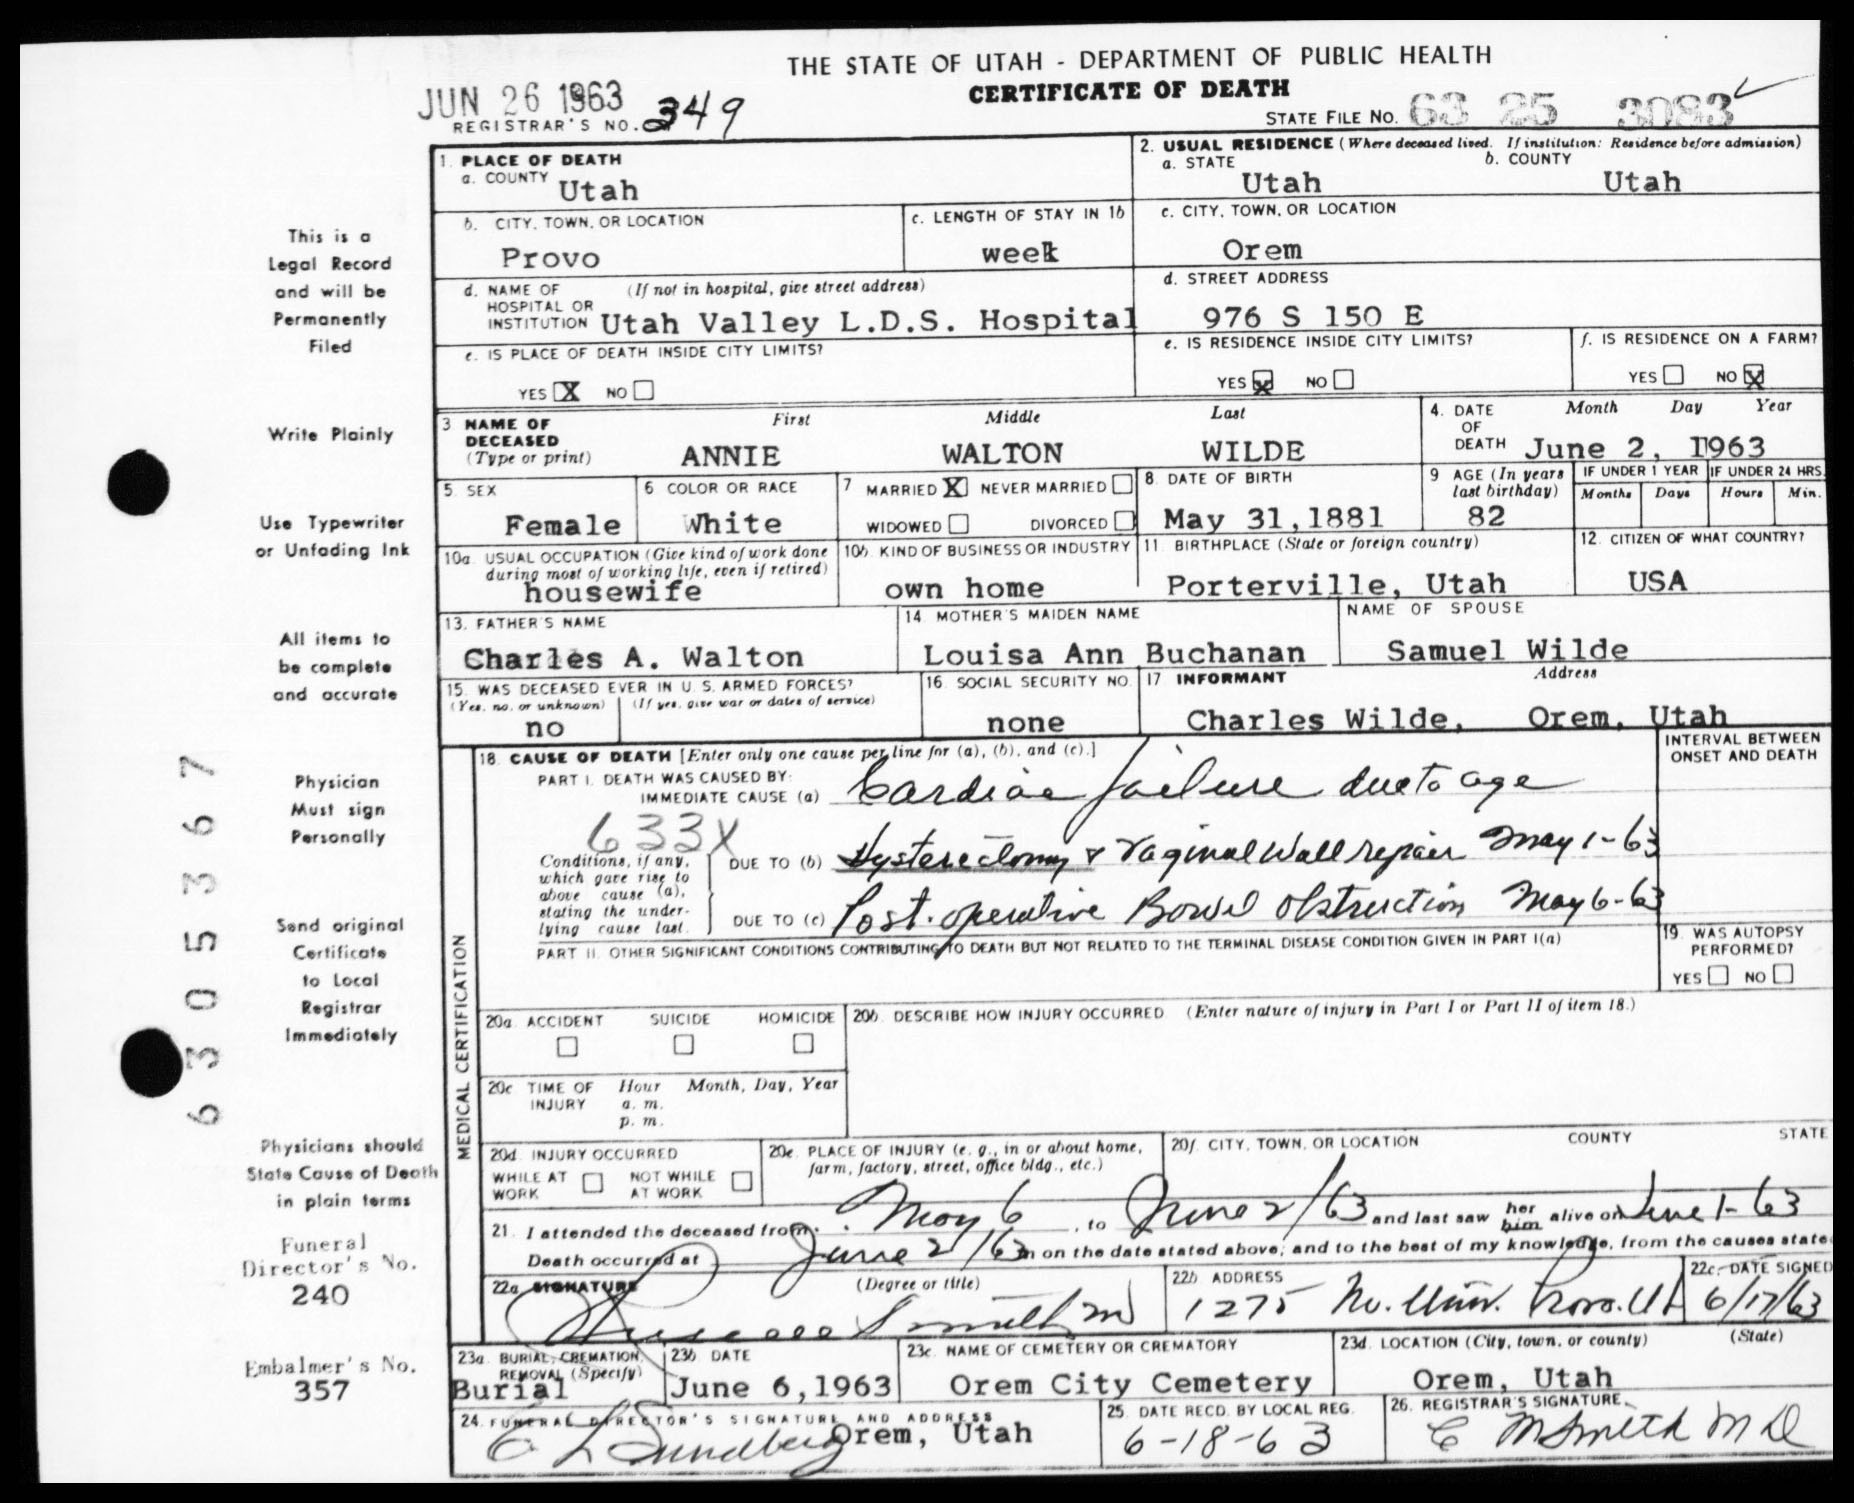 THE STATE OF UTAH - DEPARTMENT OF PUBLIC HEALTH
CERTIFICATE OF DEATH
JUN 26 1963
REGISTRAR'S NO. 349
STATE FILE NO. 63 25 3083
This is a
Legal Record
and will be
Permanently
Filed
Write Plainly
Use Typewriter
or Unfading Ink
All items to
be complete
and accurate
Physician
Must sign
Personally
Send original
Certificate
to Local
Registrar
Immediately
Physicians should
State Cause of Death
in plain terms
Funeral
Director's No.
240
Embalmer's No.
357
6305367
1. PLACE OF DEATH
a. COUNTY Utah
2. USUAL RESIDENCE (Where deceased lived. If institution: Residence before admission)
a. STATE Utah b. COUNTY Utah
b. CITY, TOWN, OR LOCATION
Provo
c. LENGTH OF STAY IN 1b
week
c. CITY, TOWN, OR LOCATION
Orem
d. NAME OF (If not in hospital, give street address)
HOSPITAL OR
INSTITUTION Utah Valley L.D.S. Hospital
d. STREET ADDRESS
976 S 150 E
e. IS PLACE OF DEATH INSIDE CITY LIMITS?
YES X NO
e. IS RESIDENCE INSIDE CITY LIMITS?
YES X NO
f. IS RESIDENCE ON A FARM?
YES NO X
3 NAME OF DECEASED (Type or print)
First Middle Last
ANNIE WALTON WILDE
4. DATE OF DEATH Month Day Year
June 2, 1963
5. SEX
Female
6 COLOR OR RACE
White
7 MARRIED X NEVER MARRIED
WIDOWED DIVORCED
8. DATE OF BIRTH
May 31,1881
9 AGE (In years last birthday)
82
IF UNDER 1 YEAR IF UNDER 24 HRS.
Months Days Hours Min.
10a. USUAL OCCUPATION (Give kind of work done
during most of working life, even if retired)
housewife
10b. KIND OF BUSINESS OR INDUSTRY
own home
11. BIRTHPLACE (State or foreign country)
Porterville, Utah
12. CITIZEN OF WHAT COUNTRY?
USA
13. FATHER'S NAME
Charles A. Walton
14. MOTHER'S MAIDEN NAME
Louisa Ann Buchanan
NAME OF SPOUSE
Samuel Wilde
15. WAS DECEASED EVER IN U. S. ARMED FORCES?
(Yes, no, or unknown) (If yes, give war or dates of service)
no
16. SOCIAL SECURITY NO.
none
17 INFORMANT Address
Charles Wilde, Orem, Utah
MEDICAL CERTIFICATION
18. CAUSE OF DEATH [Enter only one cause per line for (a), (b), and (c).]
INTERVAL BETWEEN
ONSET AND DEATH
PART I. DEATH WAS CAUSED BY:
IMMEDIATE CAUSE (a) Cardiac failure due to age
633X
Conditions, if any,
which gave rise to
above cause (a),
stating the under-
lying cause last.
DUE TO (b) Hysterectomy & Vaginal Wall repair May 1-63
DUE TO (c) Post-operative Bowel Obstruction May 6-63
PART II. OTHER SIGNIFICANT CONDITIONS CONTRIBUTING TO DEATH BUT NOT RELATED TO THE TERMINAL DISEASE CONDITION GIVEN IN PART I(a)
19. WAS AUTOPSY
PERFORMED?
YES NO
20a. ACCIDENT SUICIDE HOMICIDE
20b. DESCRIBE HOW INJURY OCCURRED (Enter nature of injury in Part I or Part II of item 18.)
20c TIME OF INJURY Hour Month, Day, Year
a. m.
p. m.
20d. INJURY OCCURRED
WHILE AT WORK NOT WHILE AT WORK
20e. PLACE OF INJURY (e. g., in or about home,
farm, factory, street, office bldg., etc.)
20f. CITY, TOWN, OR LOCATION COUNTY STATE
21. I attended the deceased from May 6, to June 2/63 and last saw her him alive on June 1-63
Death occurred at June 2/63 m on the date stated above; and to the best of my knowledge, from the causes state
22a SIGNATURE (Degree or title)
Smith MD
22b ADDRESS
1275 No. Univ. Provo. Ut
22c. DATE SIGNED
6/17/63
23a. BURIAL, CREMATION,
REMOVAL (Specify)
Burial
23b DATE
June 6,1963
23c. NAME OF CEMETERY OR CREMATORY
Orem City Cemetery
23d. LOCATION (City, town, or county) (State)
Orem, Utah
24. FUNERAL DIRECTOR'S SIGNATURE AND ADDRESS
E L Sundberg Orem, Utah
25. DATE RECD. BY LOCAL REG.
6-18-63
26. REGISTRAR'S SIGNATURE
C M Smith MD